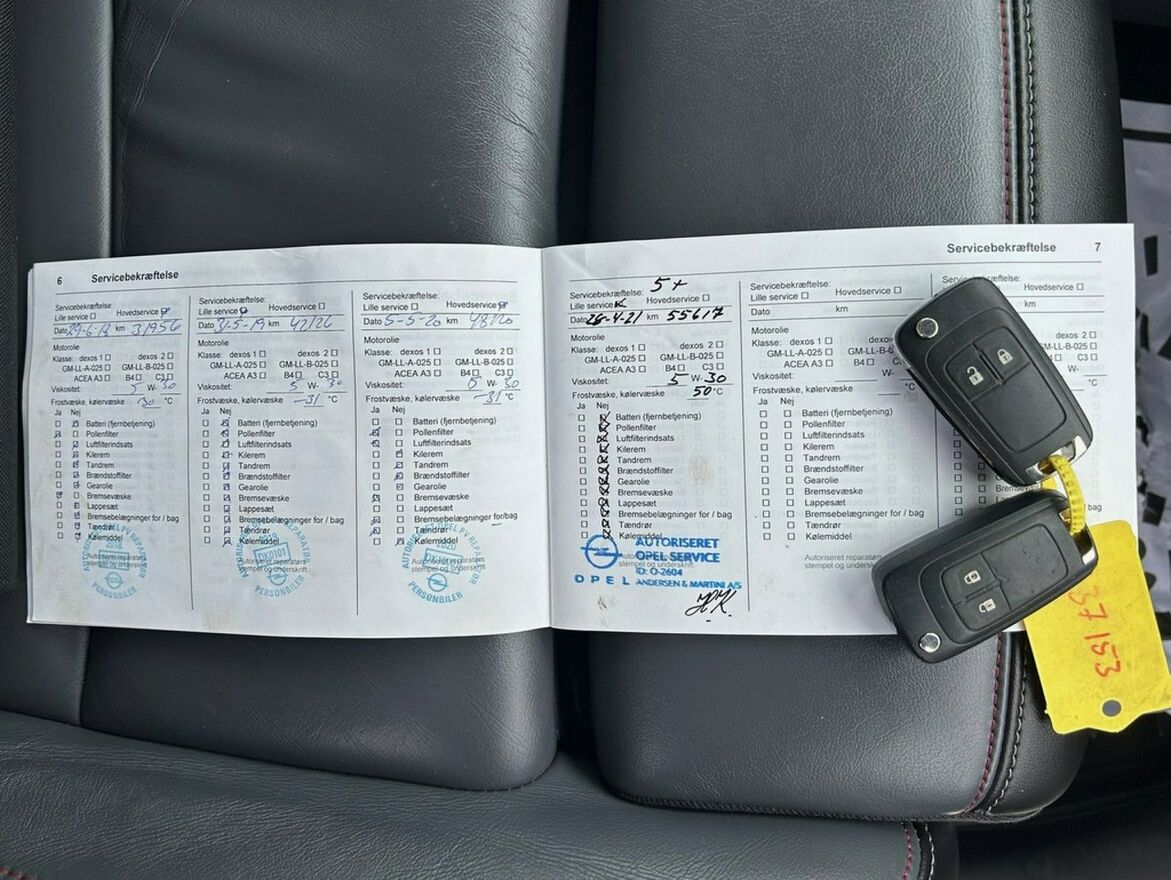 6 Servicebekræftelse
Servicebekræftelse:
Lille service Hovedservice
Dato 29-6-18 km 31956
Motorolie
Klasse: dexos 1 dexos 2
GM-LL-A-025 GM-LL-B-025
ACEA A3 B4 C3
Viskositet: 5 W- 30
Frostvæske, kølervæske -30 °C
Ja Nej
Batteri (fjernbetjening)
Pollenfilter
Luftfilterindsats
Kilerem
Tandrem
Brændstoffilter
Gearolie
Bremsevæske
Lappesæt
Bremsebelægninger for / bag
Tændrør
Kølemiddel
Autoriseret reparatørs
stempel og underskrift
PERSONBILER
Servicebekræftelse:
Lille service Hovedservice
Dato 31-5-19 km 42126
Motorolie
Klasse: dexos 1 dexos 2
GM-LL-A-025 GM-LL-B-025
ACEA A3 B4 C3
Viskositet: 5 W- 30
Frostvæske, kølervæske -31 °C
Ja Nej
Batteri (fjernbetjening)
Pollenfilter
Luftfilterindsats
Kilerem
Tandrem
Brændstoffilter
Gearolie
Bremsevæske
Lappesæt
Bremsebelægninger for / bag
Tændrør
Kølemiddel
Autoriseret reparatørs
stempel og underskrift
2019
DK0101
PERSONBILER
Servicebekræftelse:
Lille service Hovedservice
Dato 5-5-20 km 48120
Motorolie
Klasse: dexos 1 dexos 2
GM-LL-A-025 GM-LL-B-025
ACEA A3 B4 C3
Viskositet: 5 W- 30
Frostvæske, kølervæske -31 °C
Ja Nej
Batteri (fjernbetjening)
Pollenfilter
Luftfilterindsats
Kilerem
Tandrem
Brændstoffilter
Gearolie
Bremsevæske
Lappesæt
Bremsebelægninger for/bag
Tændrør
Kølemiddel
Autoriseret reparatørs
stempel og underskrift
2020
PERSONBILER
Servicebekræftelse 7
5+
Servicebekræftelse:
Lille service Hovedservice
Dato 26-4-21 km 55617
Motorolie
Klasse: dexos 1 dexos 2
GM-LL-A-025 GM-LL-B-025
ACEA A3 B4 C3
Viskositet: 5 W- 30
Frostvæske, kølervæske 50 °C
Ja Nej
Batteri (fjernbetjening)
Pollenfilter
Luftfilterindsats
Kilerem
Tandrem
Brændstoffilter
Gearolie
Bremsevæske
Lappesæt
Bremsebelægninger for / bag
Tændrør
Kølemiddel
AUTORISERET
OPEL SERVICE
ID: O-2604
OPEL ANDERSEN & MARTINI A/S
Servicebekræftelse:
Lille service Hovedservice
Dato km
Motorolie
Klasse: dexos 1
GM-LL-A-025
ACEA A3 B4
Viskositet: W-
Frostvæske, kølervæske
Ja Nej
Batteri (fjernbetjening)
Pollenfilter
Luftfilterindsats
Kilerem
Tandrem
Brændstoffilter
Gearolie
Bremsevæske
Lappesæt
Bremsebelægninger for / bag
Tændrør
Kølemiddel
Autoriseret reparatørs
stempel og underskrift
Hovedservice
km
dexos 2
GM-LL-B-025
C3
W-
°C
37153